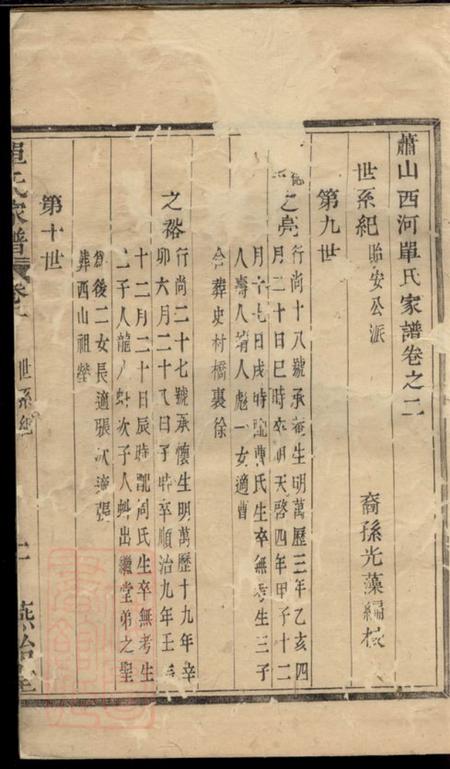 蕭山西河單氏家譜卷之二
世系紀 貽安公派
裔孫光藻編梭
第九世
之亮
行尚十八號承菴生明萬歷三年乙亥四
月二十日巳時卒明天啓四年甲子十二
月六日戌時配曹氏生卒無考生三子
人壽人堉人彪一女適曹
合葬史村橋裏徐
之裕
行尚二十七號承懷生明萬歷十九年辛
卯六月二十八日子時卒順治九年壬辰
十二月二十日辰時配周氏生卒無考生
二子人龍人蚪次子人蚪出繼堂弟之聖
為後二女長適張次適張
葬西山祖塋
第十世
單氏家譜 卷二 世系紀 一